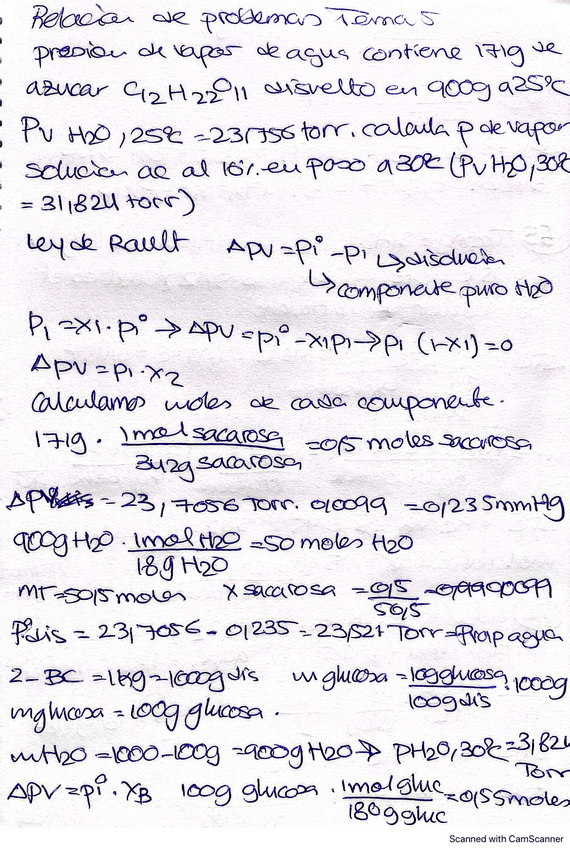 Relación de problemas Tema 5
presión de vapor de agua contiene 171g de
azucar C12H22O11 disuelto en 900g a 25ºC
Pv H2O, 25ºC = 23,756 torr. calcula p de vapor
solución ac al 10% en peso a 30ºC (Pv H2O, 30ºC
= 31,824 torr)
Ley de Rault ΔPV = Pi° - Pi ↳ disolución
↳ componente puro H2O
P1 = X1 · Pi° → ΔPV = Pi° - X1P1 → Pi (1-X1) = 0
ΔPV = Pi · X2
Calculamos moles de cada componente.
171g · 1mol sacarosa / 342g sacarosa = 0,5 moles sacarosa
ΔPV = 23,7056 Torr. 0,0099 = 0,235mmHg
900g H2O · 1mol H2O / 18g H2O = 50 moles H2O
mT = 50,5 moles X sacarosa = 0,5 / 50,5 = 0,0099
P°dis = 23,7056 - 0,235 = 23,521 Torr = Pvap agua
2 - BC = 1kg = 1000g dis m glucosa = 10g glucosa / 100g dis · 1000g
m glucosa = 100g glucosa.
mH2O = 1000-100g = 900g H2O → PH2O, 30ºC = 31,824
Torr
ΔPV = Pi° · XB 100g glucosa · 1mol gluc / 180g gluc = 0,55 moles
Scanned with CamScanner